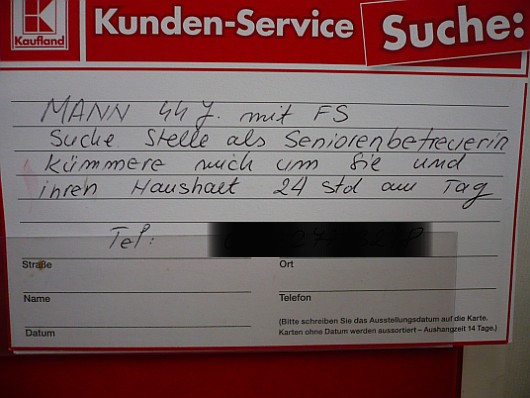 Kaufland
Kunden-Service
Suche:
MANN 44 J. mit FS
Suche Stelle als Seniorenbetreuerin
kümmere mich um Sie und
ihren Haushalt 24 Std am Tag
Tel:
Straße
Ort
Name
Telefon
Datum
(Bitte schreiben Sie das Ausstellungsdatum auf die Karte.
Karten ohne Datum werden aussortiert – Aushangzeit 14 Tage.)